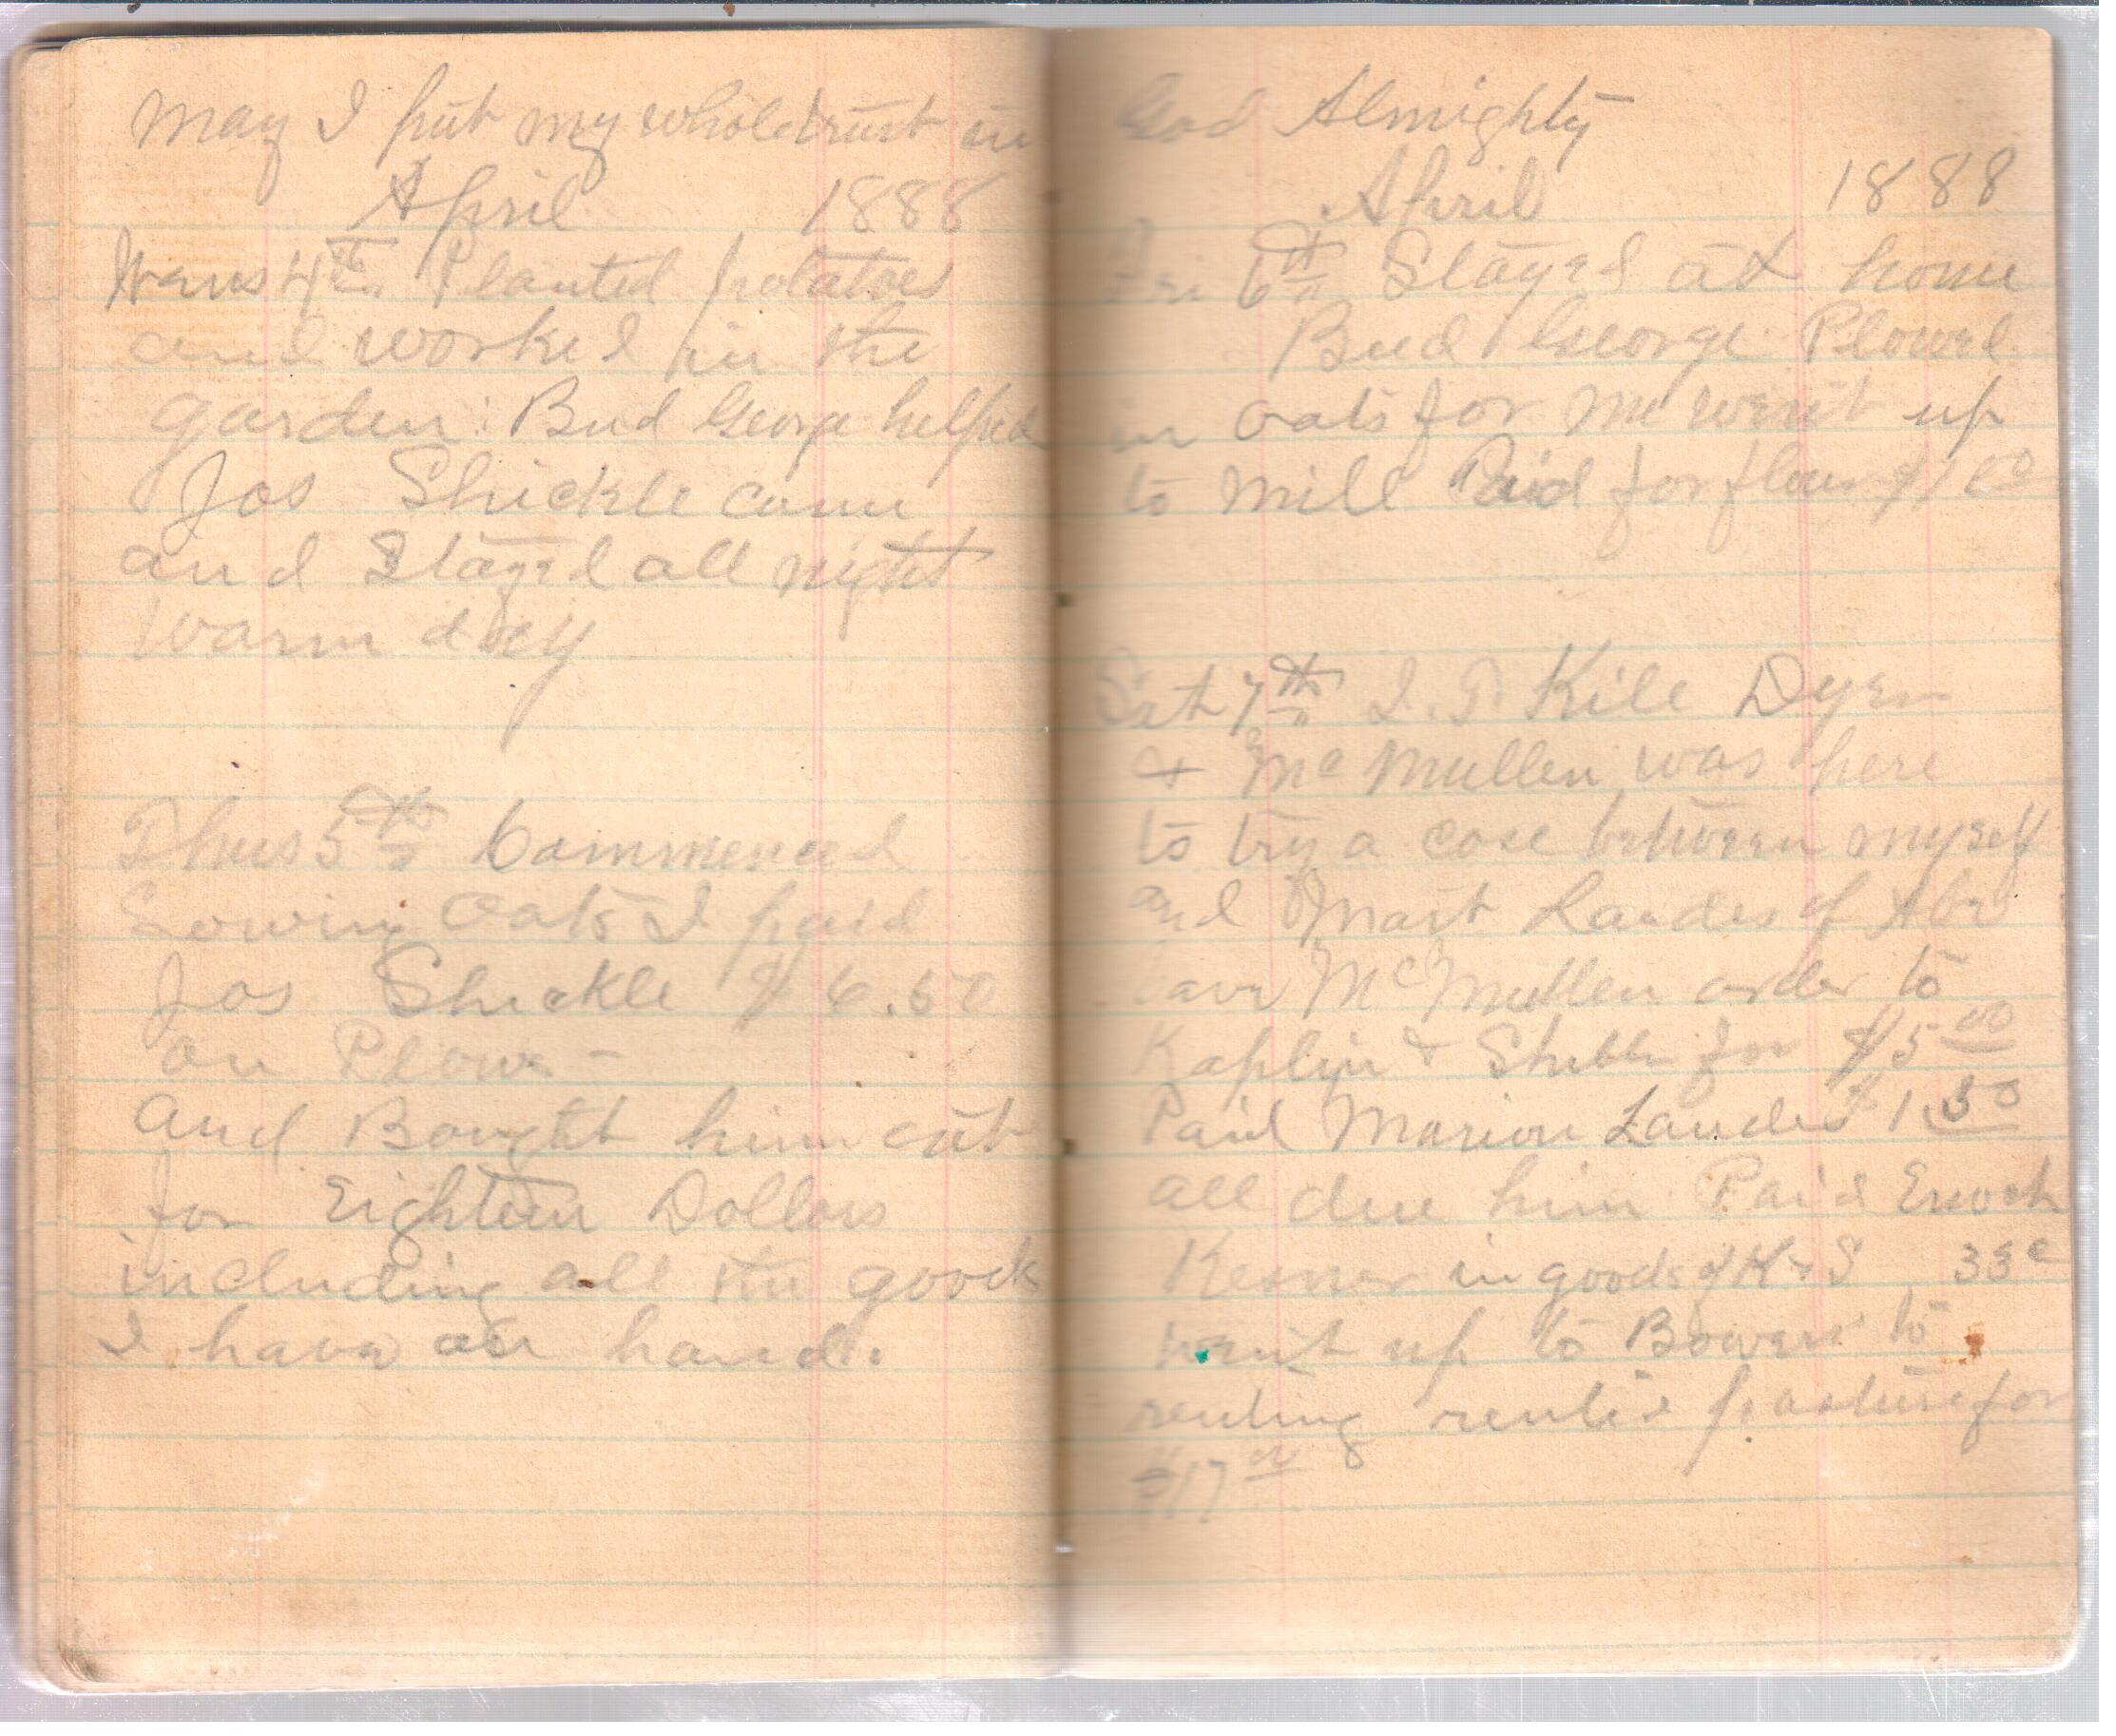 May I put my whole trust in
April 1888
Wens 4th Planted potatoes
and worked in the
garden. Bud George helped
Jos Shickle came
and Stayed all night
Warm day
Thurs 5th Commenced
Sowing Oats I paid
Jos Shickle $6.50
on Plow -
and Bought him out
for Eighteen Dollars
including all the goods
I have on hand.
God Almighty
April 1888
Fri 6th Stayed at home
Bud George Plowed
in oats for me went up
to Mill Paid for flour $1 00
Sat 7th I. T. Kile Dyer
& Mc Mullen was here
to try a case between myself
and Mart Landes of Abr
Gave McMullen order to
Kaplyn & Stubbs for $5 00
Paid Marion Landes $1.50
all due him Paid Enoch
Kesner in goods of K & S 33c
went up to Bowers to
renting rented pasture for
$17 00